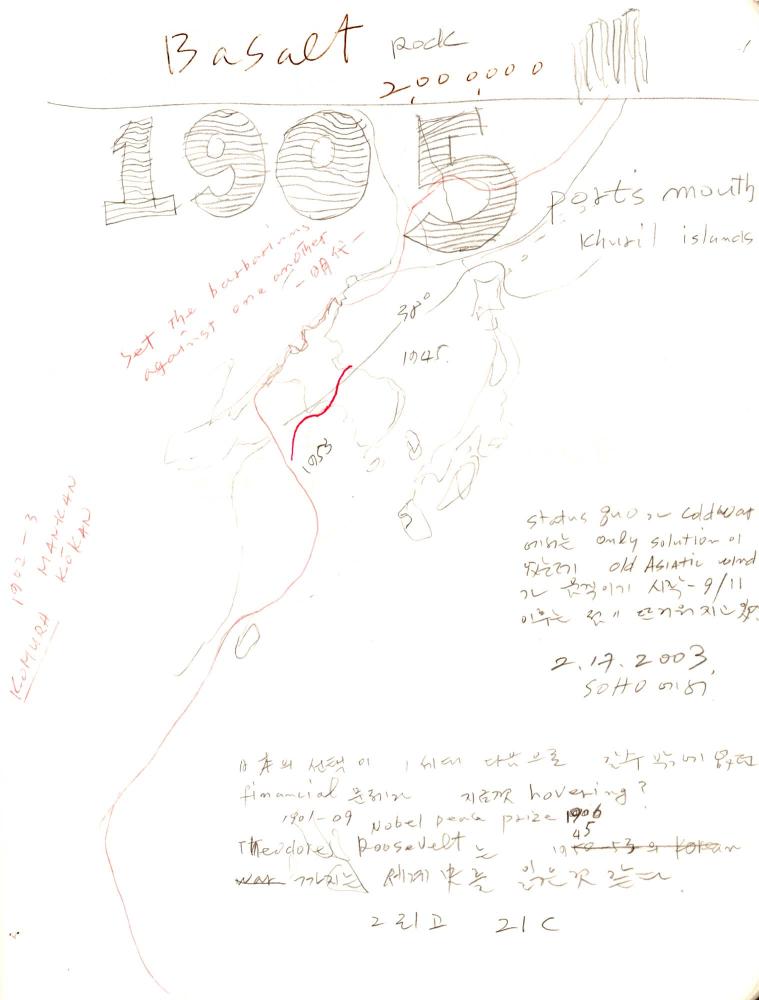 Basalt rock
2,000,000
1905
ports mouth
Khuril islands
Set the barbarians
against one another
38°
1945.
1953
1902-3
MANKAN
KOMURA KŌKAN
status quo coldwar
에서는 only solution 이
old Asiatic wind
가 움직이기 시작 - 9/11
이후는
2.17.2003.
SOHO 에서
日本의 선택이 1세대 다음으로 갈수 밖에 없던
financial 문제가 지금껏 hovering?
1901-09 Nobel peace prize 1906
Theodore Roosevelt 는 1950-53 의 Korean
45
war 까지는 세계 史를 읽은것 같다
그리고 21C